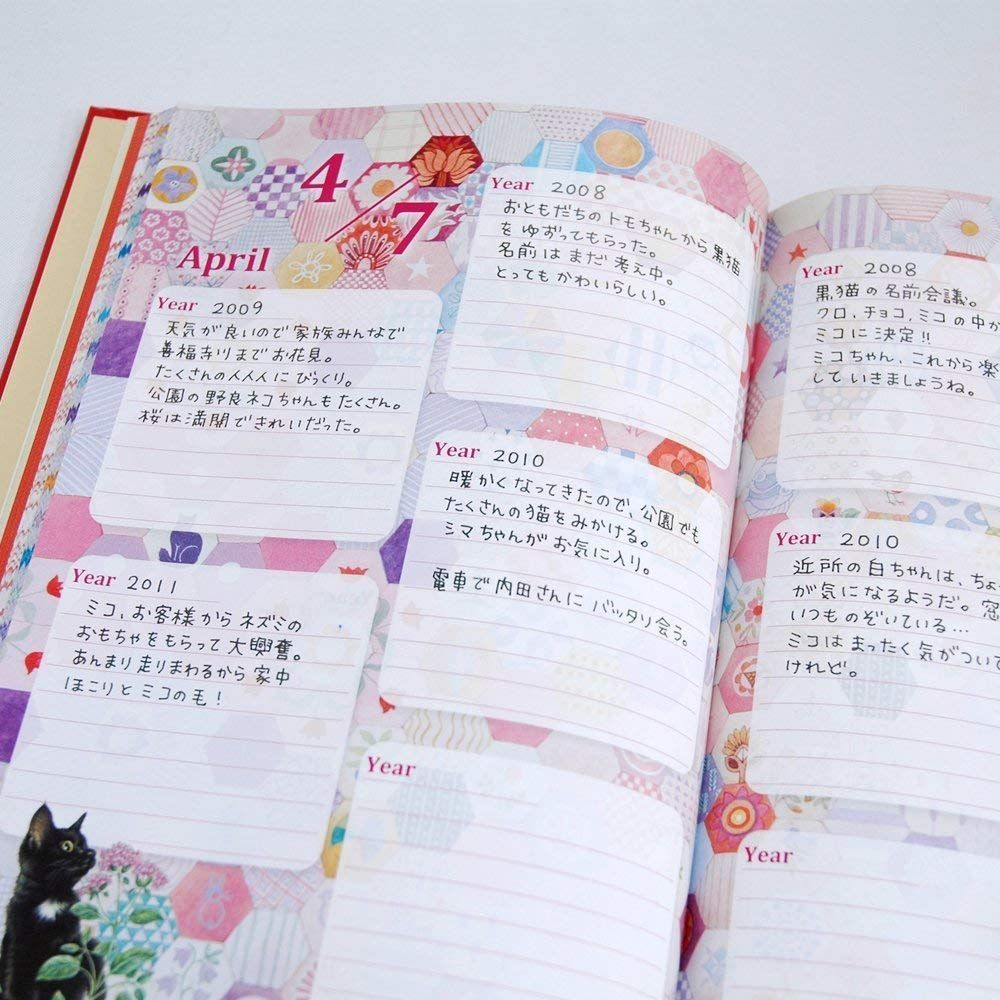 4/7
April
Year 2008
おともだちのトモちゃんから黒猫
をゆずってもらった。
名前はまだ考え中。
とってもかわいらしい。
Year 2009
天気が良いので家族みんなで
善福寺川までお花見。
たくさんの人人人にびっくり。
公園の野良ネコちゃんもたくさん。
桜は満開できれいだった。
Year 2010
暖かくなってきたので、公園でも
たくさんの猫をみかける。
ミマちゃんがお気に入り。
電車で内田さんにバッタリ会う。
Year 2011
ミコ、お客様からネズミの
おもちゃをもらって大興奮。
あんまり走りまわるから家中
ほこりとミコの毛!
Year
Year 2008
黒猫の名前会議。
クロ、チョコ、ミコの中か
ミコに決定!!
ミコちゃん、これから楽
していきましょうね。
Year 2010
近所の白ちゃんは、ちょ
が気になるようだ。窓
いつものぞいている…
ミコはまったく気がついて
けれど。
Year